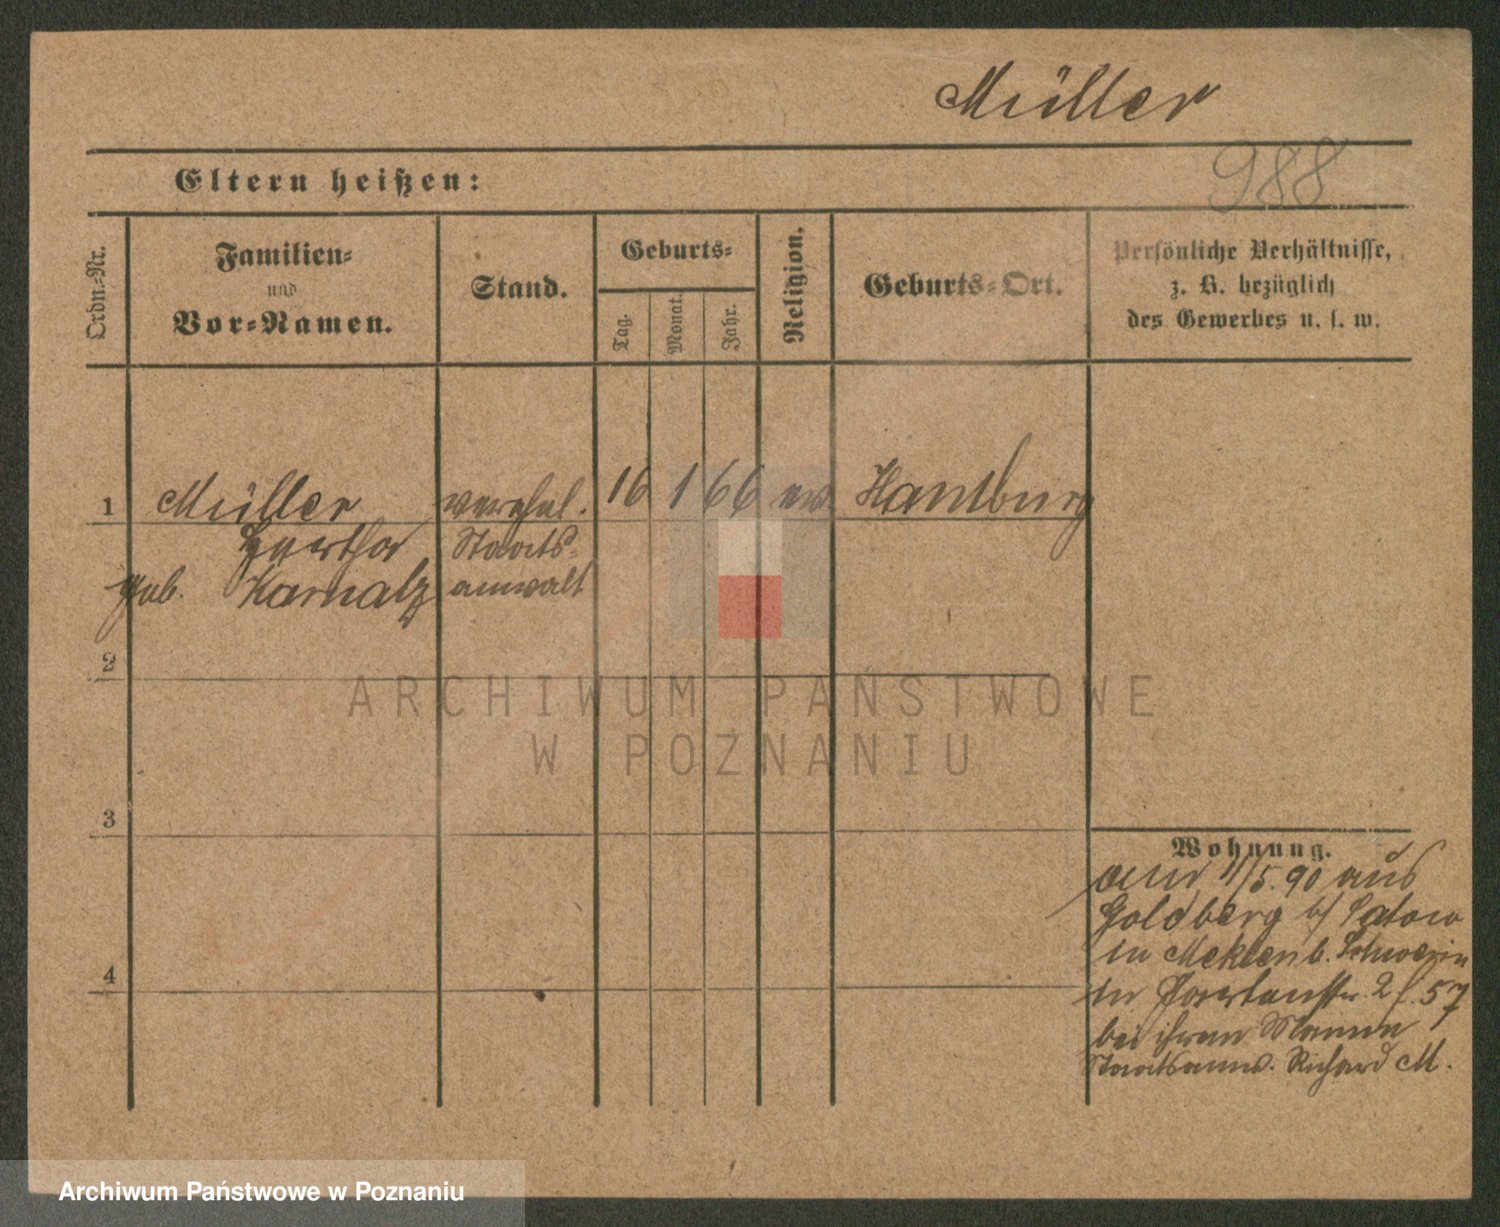 Müller
988
Eltern heißen:
Ordn.-Nr.
Familien-
und
Vor-Namen.
Stand.
Geburts-
Tag.
Monat.
Jahr.
Religion.
Geburts-Ort.
Persönliche Verhältnisse,
z. B. bezüglich
des Gewerbes u. s. w.
1
Müller
Hertha
geb.
verehel.
Staats-
anwalt
16
1
66
ev.
Hamburg
2
3
4
Wohnung.
1/5.90 aus
Goldberg b/ Satow
in Meklenb. Schwerin
in 2
bei ihrem Manne
Staatsanw. Richard M.
ARCHIWUM PAŃSTWOWE
W POZNANIU
Archiwum Państwowe w Poznaniu